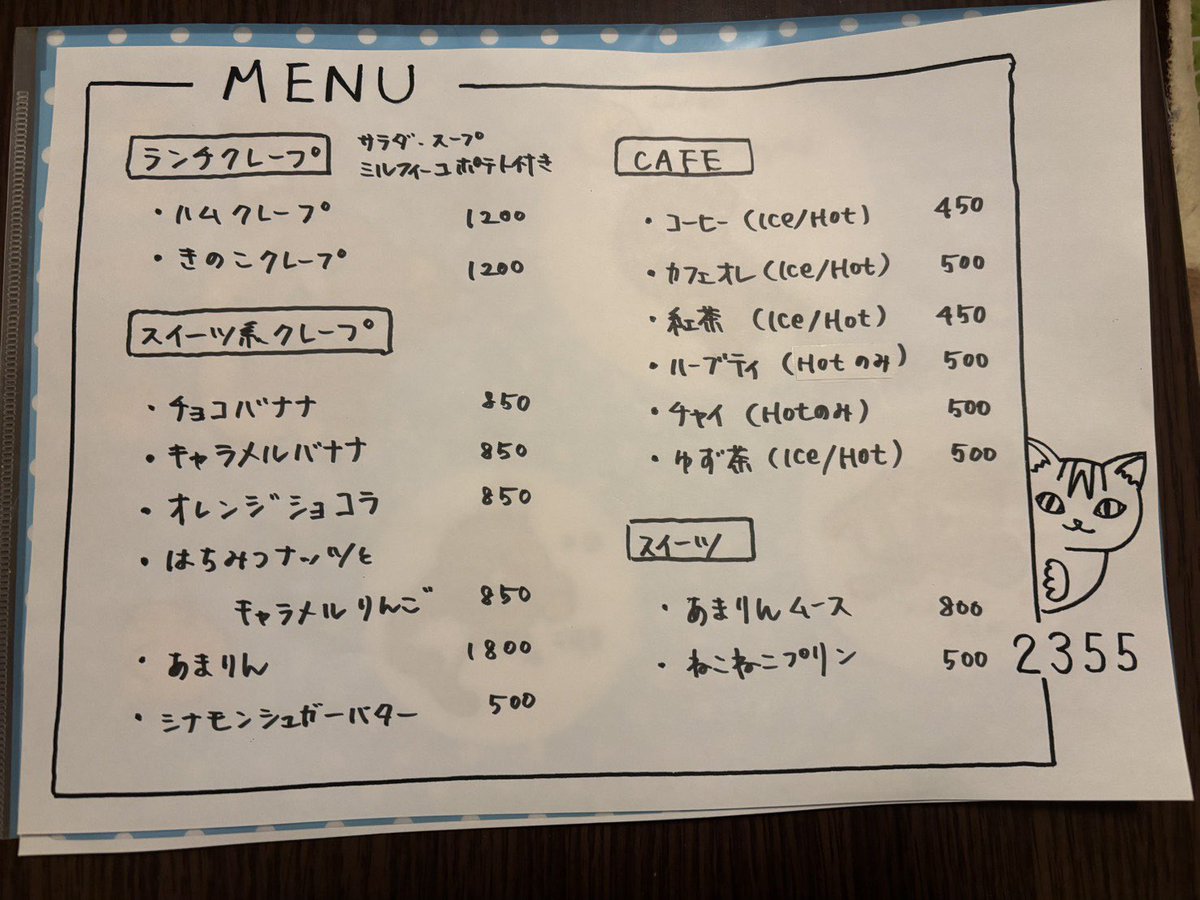 MENU
ランチクレープ
サラダ・スープ
ミルフィーユポテト付き
・ハムクレープ 1200
・きのこクレープ 1200
スイーツ系クレープ
・チョコバナナ 850
・キャラメルバナナ 850
・オレンジショコラ 850
・はちみつナッツと
キャラメルりんご 850
・あまりん 1800
・シナモンシュガーバター 500
CAFE
・コーヒー (Ice/Hot) 450
・カフェオレ (Ice/Hot) 500
・紅茶 (Ice/Hot) 450
・ハーブティ (Hotのみ) 500
・チャイ (Hotのみ) 500
・ゆず茶 (Ice/Hot) 500
スイーツ
・あまりんムース 800
・ねこねこプリン 500
2355